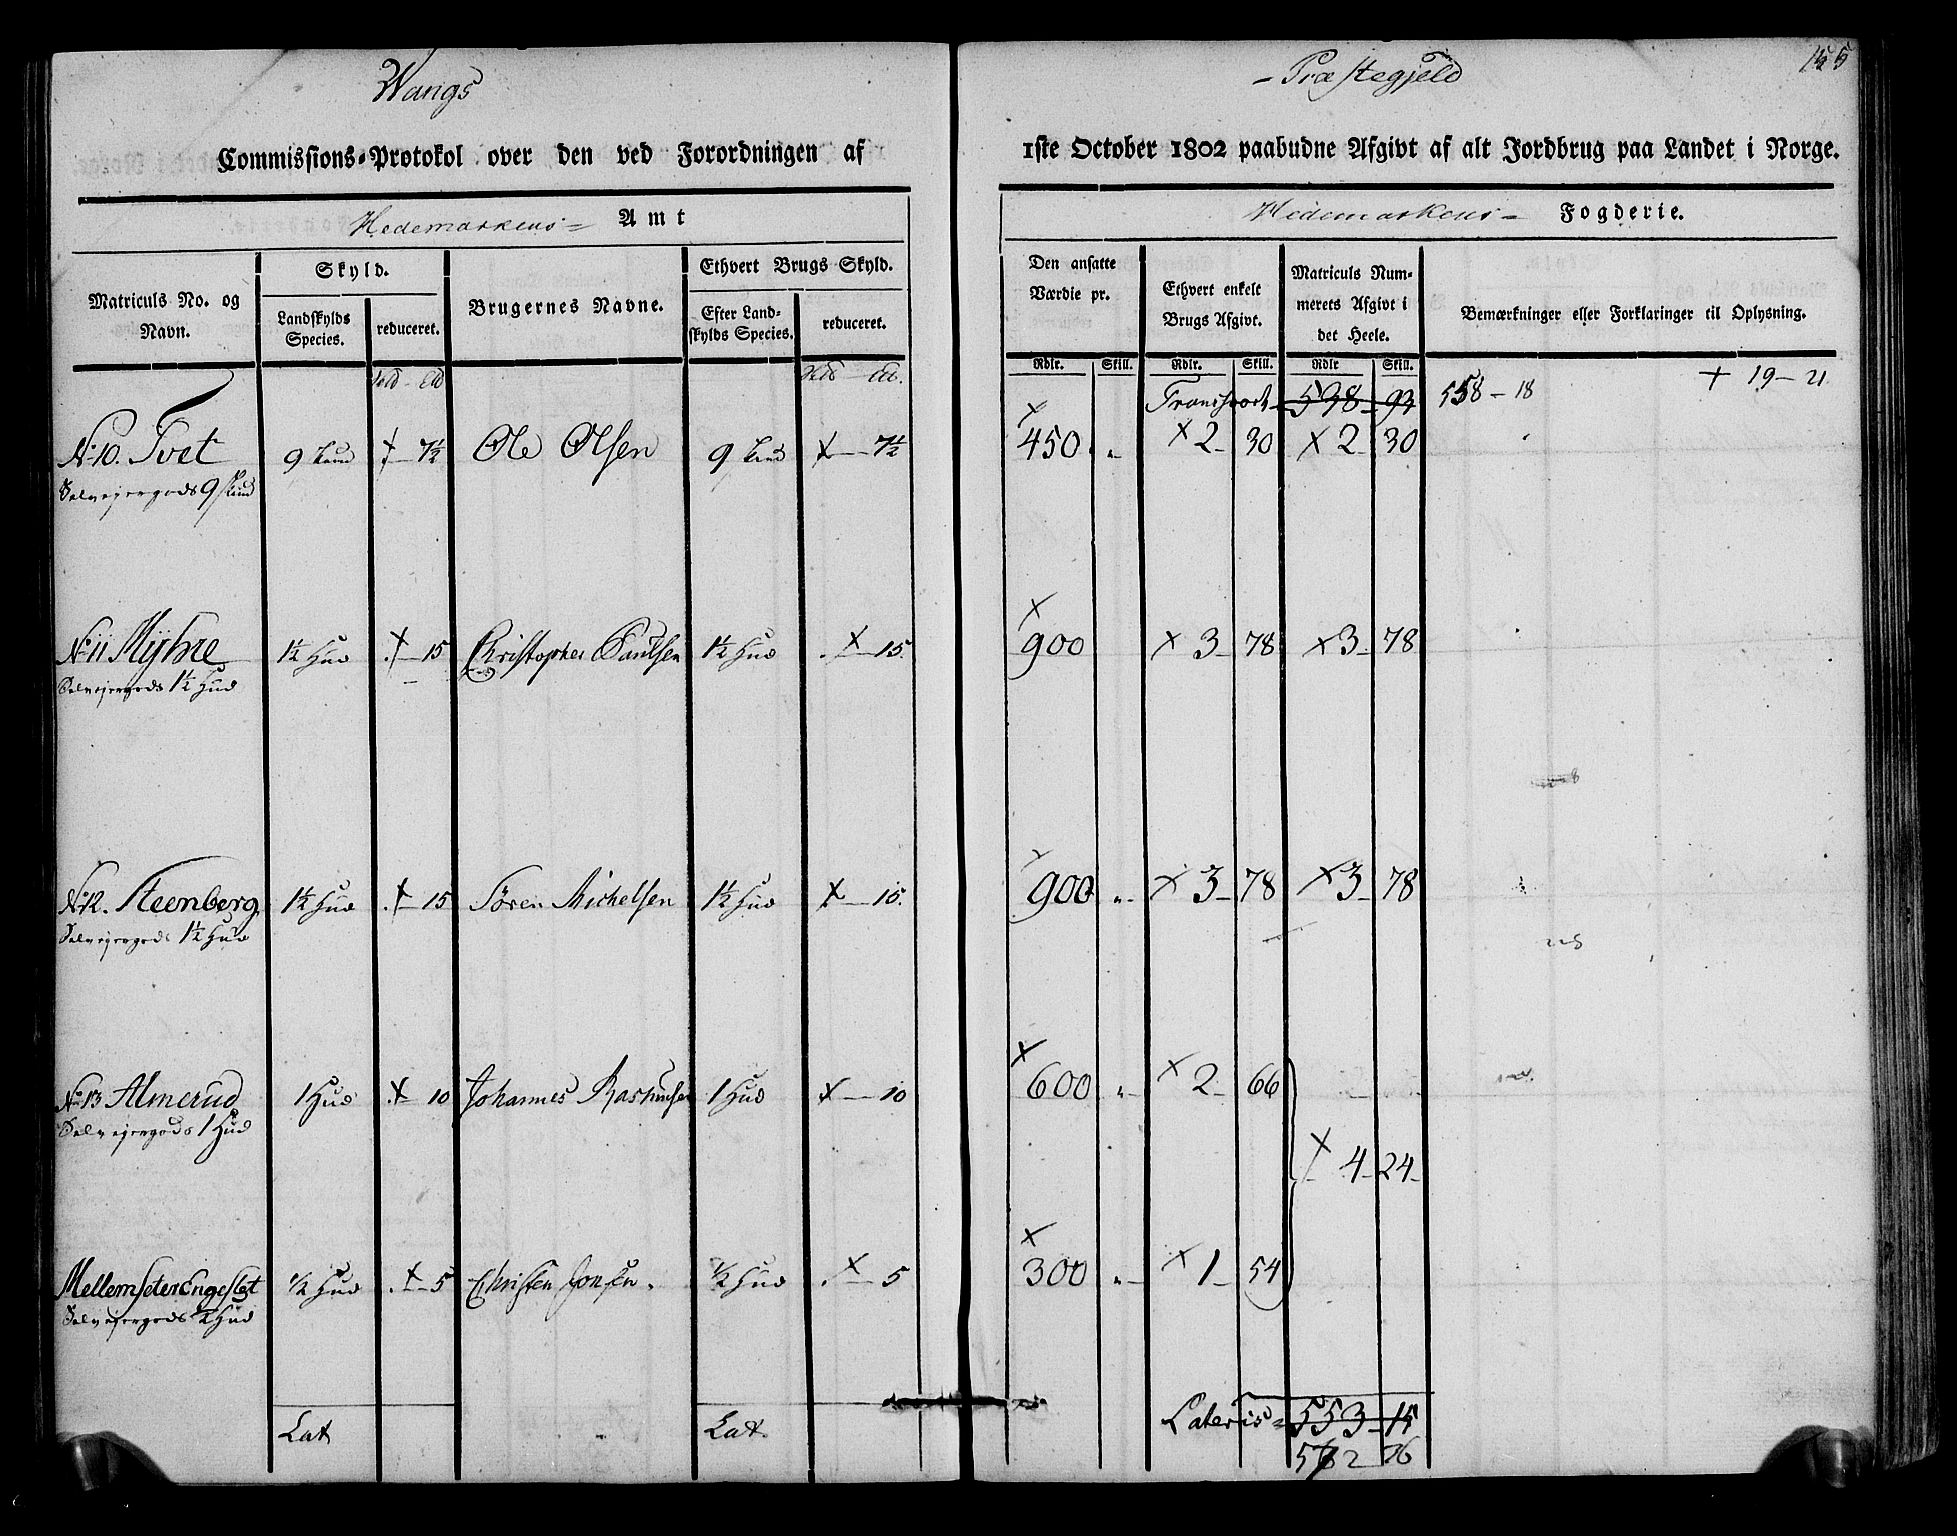 Wangs
- Præstegjeld
155
Commissions-Protokol over den ved Forordningen af
1ste October 1802 paabudne Afgivt af alt Jordbrug paa Landet i Norge.
Hedemarkens Amt
Hedemarkens Fogderie.
Matriculs No. og Navn.
Skyld.
Landskylds Species.
reduceret.
Brugernes Navne.
Ethvert Brugs Skyld.
Efter Landskylds Species.
reduceret.
Den ansatte Værdie pr.
Ethvert enkelt Brugs Afgivt.
Matriculs Nummerets Afgivt i det Heele.
Bemærkninger eller Forklaringer til Oplysning.
Rdlr. Skill. Rdlr. Skill. Rdlr Skill.
Transport 538 - 93 558 - 18 + 19 - 21
No 10. Tvet 9 Skind 7½ Ole Olsen 9 Skind 7½ 450 „ 2 - 30 2 30
Selvejergods 9 Skind
No 11 Myhre 1½ Hud 15 Christopher Paulsen 1½ Hud 15 900 3 - 78 3 - 78
Selvejergods 1½ Hud
No 12. Steenberg 1½ Hud 15 Sören Michelsen 1½ Hud 15. 900 „ 3 - 78 3 - 78
Selvejergods 1½ Hud
No 13 Almerud 1 Hud 10 Johannes Rasmusen 1 Hud 10 600 „ 2 - 66
Selvejergods 1 Hud
4 - 24
Mellemseter Engeslet ½ Hud 5 Christen Jonsen. ½ Hud 5 300 „ 1 - 54
Selvejergods ½ Hud
Lat Lat. Lateris 553 - 15